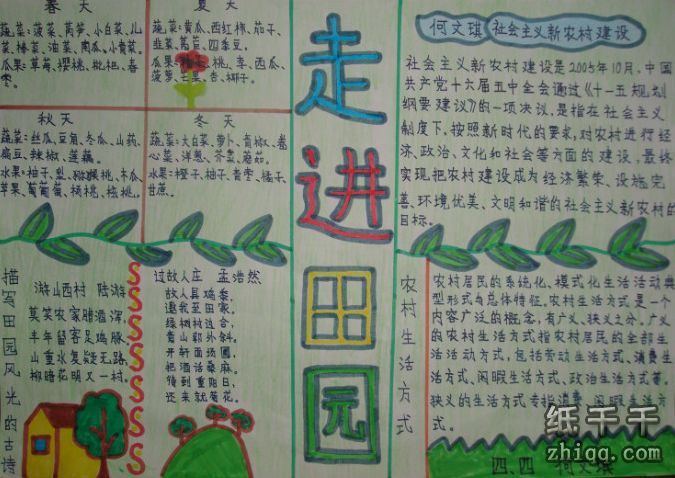 春天
蔬菜:菠菜、莴笋、小白菜、儿
菜、椿菜、油菜、南瓜、小青菜。
瓜果:草莓、樱桃、枇杷、春
枣。
夏天
蔬菜:黄瓜、西红柿、茄子、
韭菜、莴苣、四季豆。
瓜果:桃、李、西瓜、
菠萝、芒果、杏、椰子。
秋天
蔬菜:丝瓜、豆角、冬瓜、山药、
扁豆、辣椒、莲藕。
水果:柚子、梨、猕猴桃、木瓜、
苹果、葡萄、杨桃、核桃。
冬天
蔬菜:大白菜、萝卜、青椒、卷
心菜、洋葱、芥菜、蘑菇。
水果:橙子、柚子、青枣、橘子、
甘蔗。
走进田园
何文琪 社会主义新农村建设
社会主义新农村建设是2005年10月,中国
共产党十六届五中全会通过《十一五规划
纲要建议》的一项决议,是指在社会主义
制度下,按照新时代的要求,对农村进行经
济、政治、文化和社会等方面的建设,最终
实现把农村建设成为经济繁荣、设施完
善、环境优美、文明和谐的社会主义新农村的
目标。
描写田园风光的古诗
游山西村 陆游
莫笑农家腊酒浑,
丰年留客足鸡豚。
山重水复疑无路,
柳暗花明又一村。
过故人庄 孟浩然
故人具鸡黍,
邀我至田家。
绿树村边合,
青山郭外斜。
开轩面场圃,
把酒话桑麻。
待到重阳日,
还来就菊花。
农村生活方式
农村居民的系统化、模式化生活活动典
型形式与总体特征。农村生活方式是一个
内容广泛的概念,有广义、狭义之分。广义
的农村生活方式指农村居民的全部生
活活动方式,包括劳动生活方式、消费生
活方式、闲暇生活方式、政治生活方式等。
狭义的生活方式专指消费、闲暇生活方
式。
四、四 何文琪
纸千千
zhiqq.com